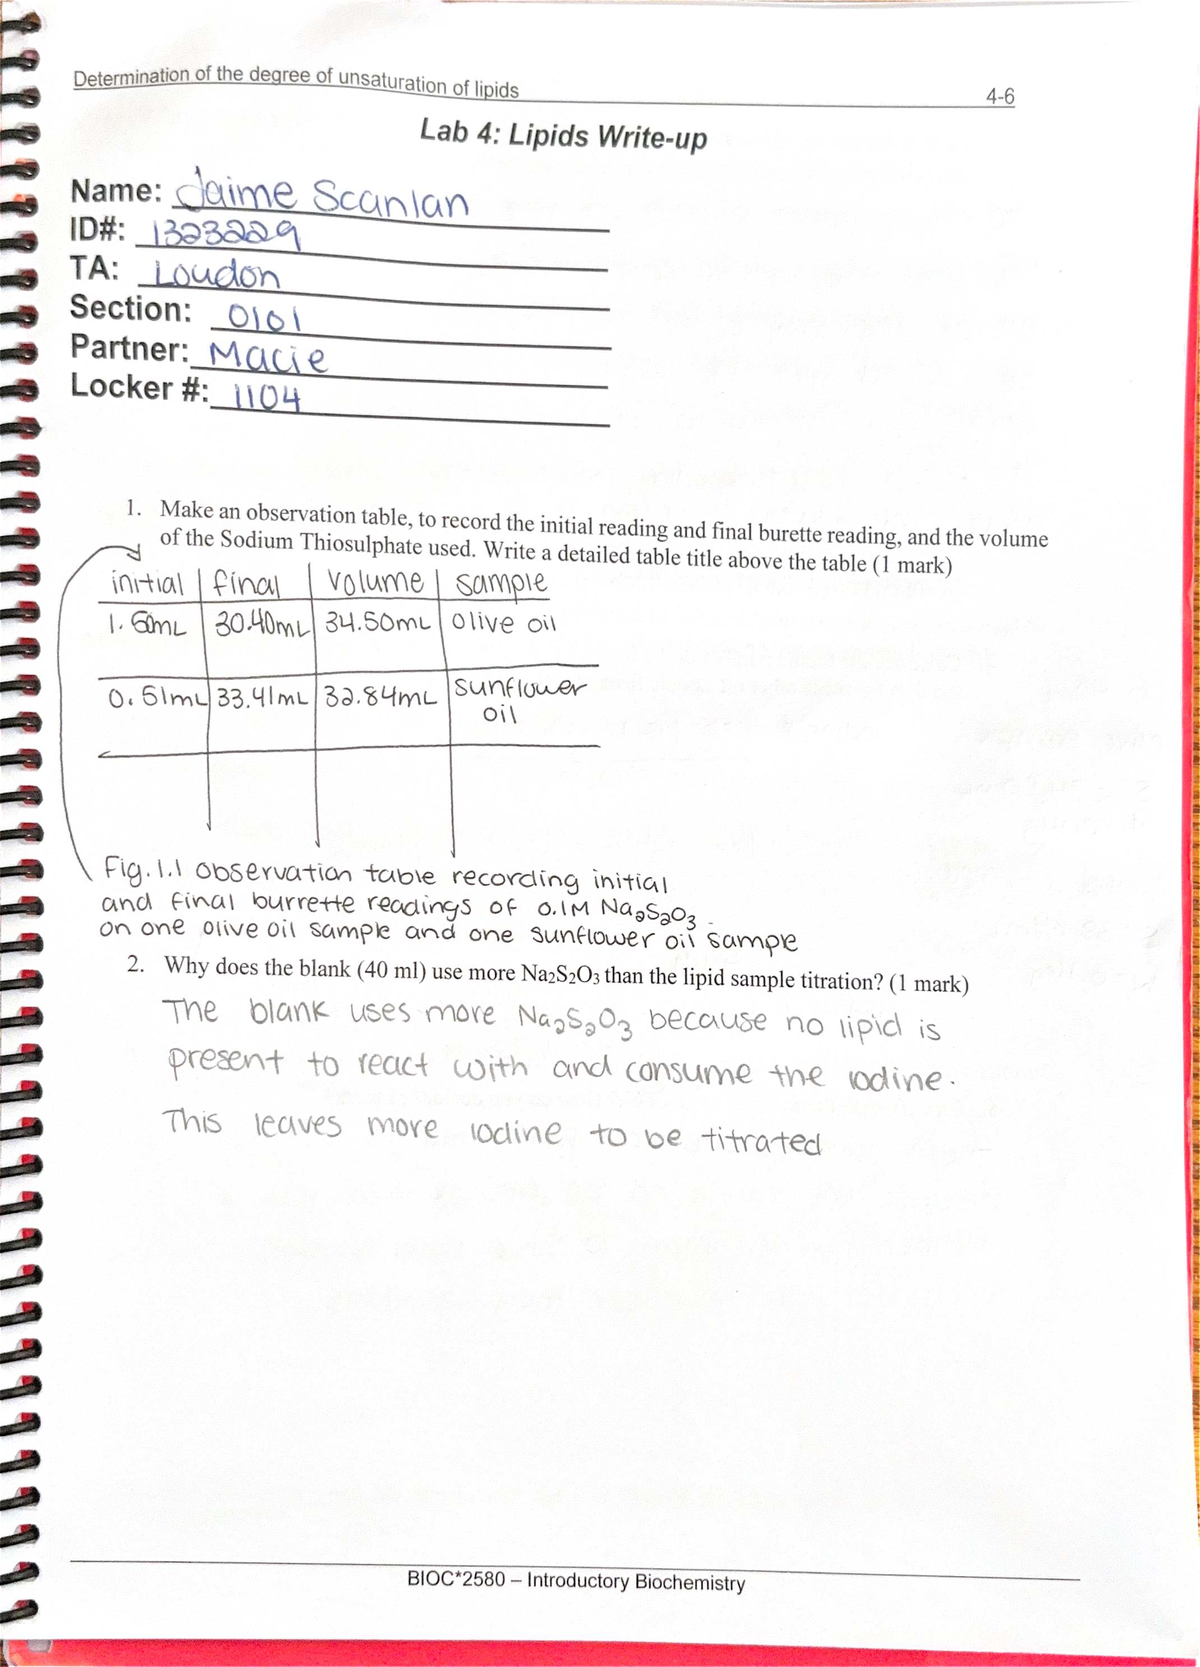 Determination of the degree of unsaturation of lipids 4-6
Lab 4: Lipids Write-up
Name: Jaime Scanlan
ID#: 1323229
TA: Loudon
Section: 0101
Partner: Macie
Locker #: 1104
1. Make an observation table, to record the initial reading and final burette reading, and the volume
of the Sodium Thiosulphate used. Write a detailed table title above the table (1 mark)
initial final volume sample
30.40mL 34.50mL Olive oil
33.41mL 32.84mL sunflower
oil
Fig. 1.1 Observation table recording initial
and final burrette readings of 0.1M Na2S2O3
on one olive oil sample and one sunflower oil sample
2. Why does the blank (40 ml) use more Na2S2O3 than the lipid sample titration? (1 mark)
The blank uses more Na2S2O3 because no lipid is
present to react with and consume the iodine.
This leaves more iodine to be titrated
BIOC*2580 – Introductory Biochemistry